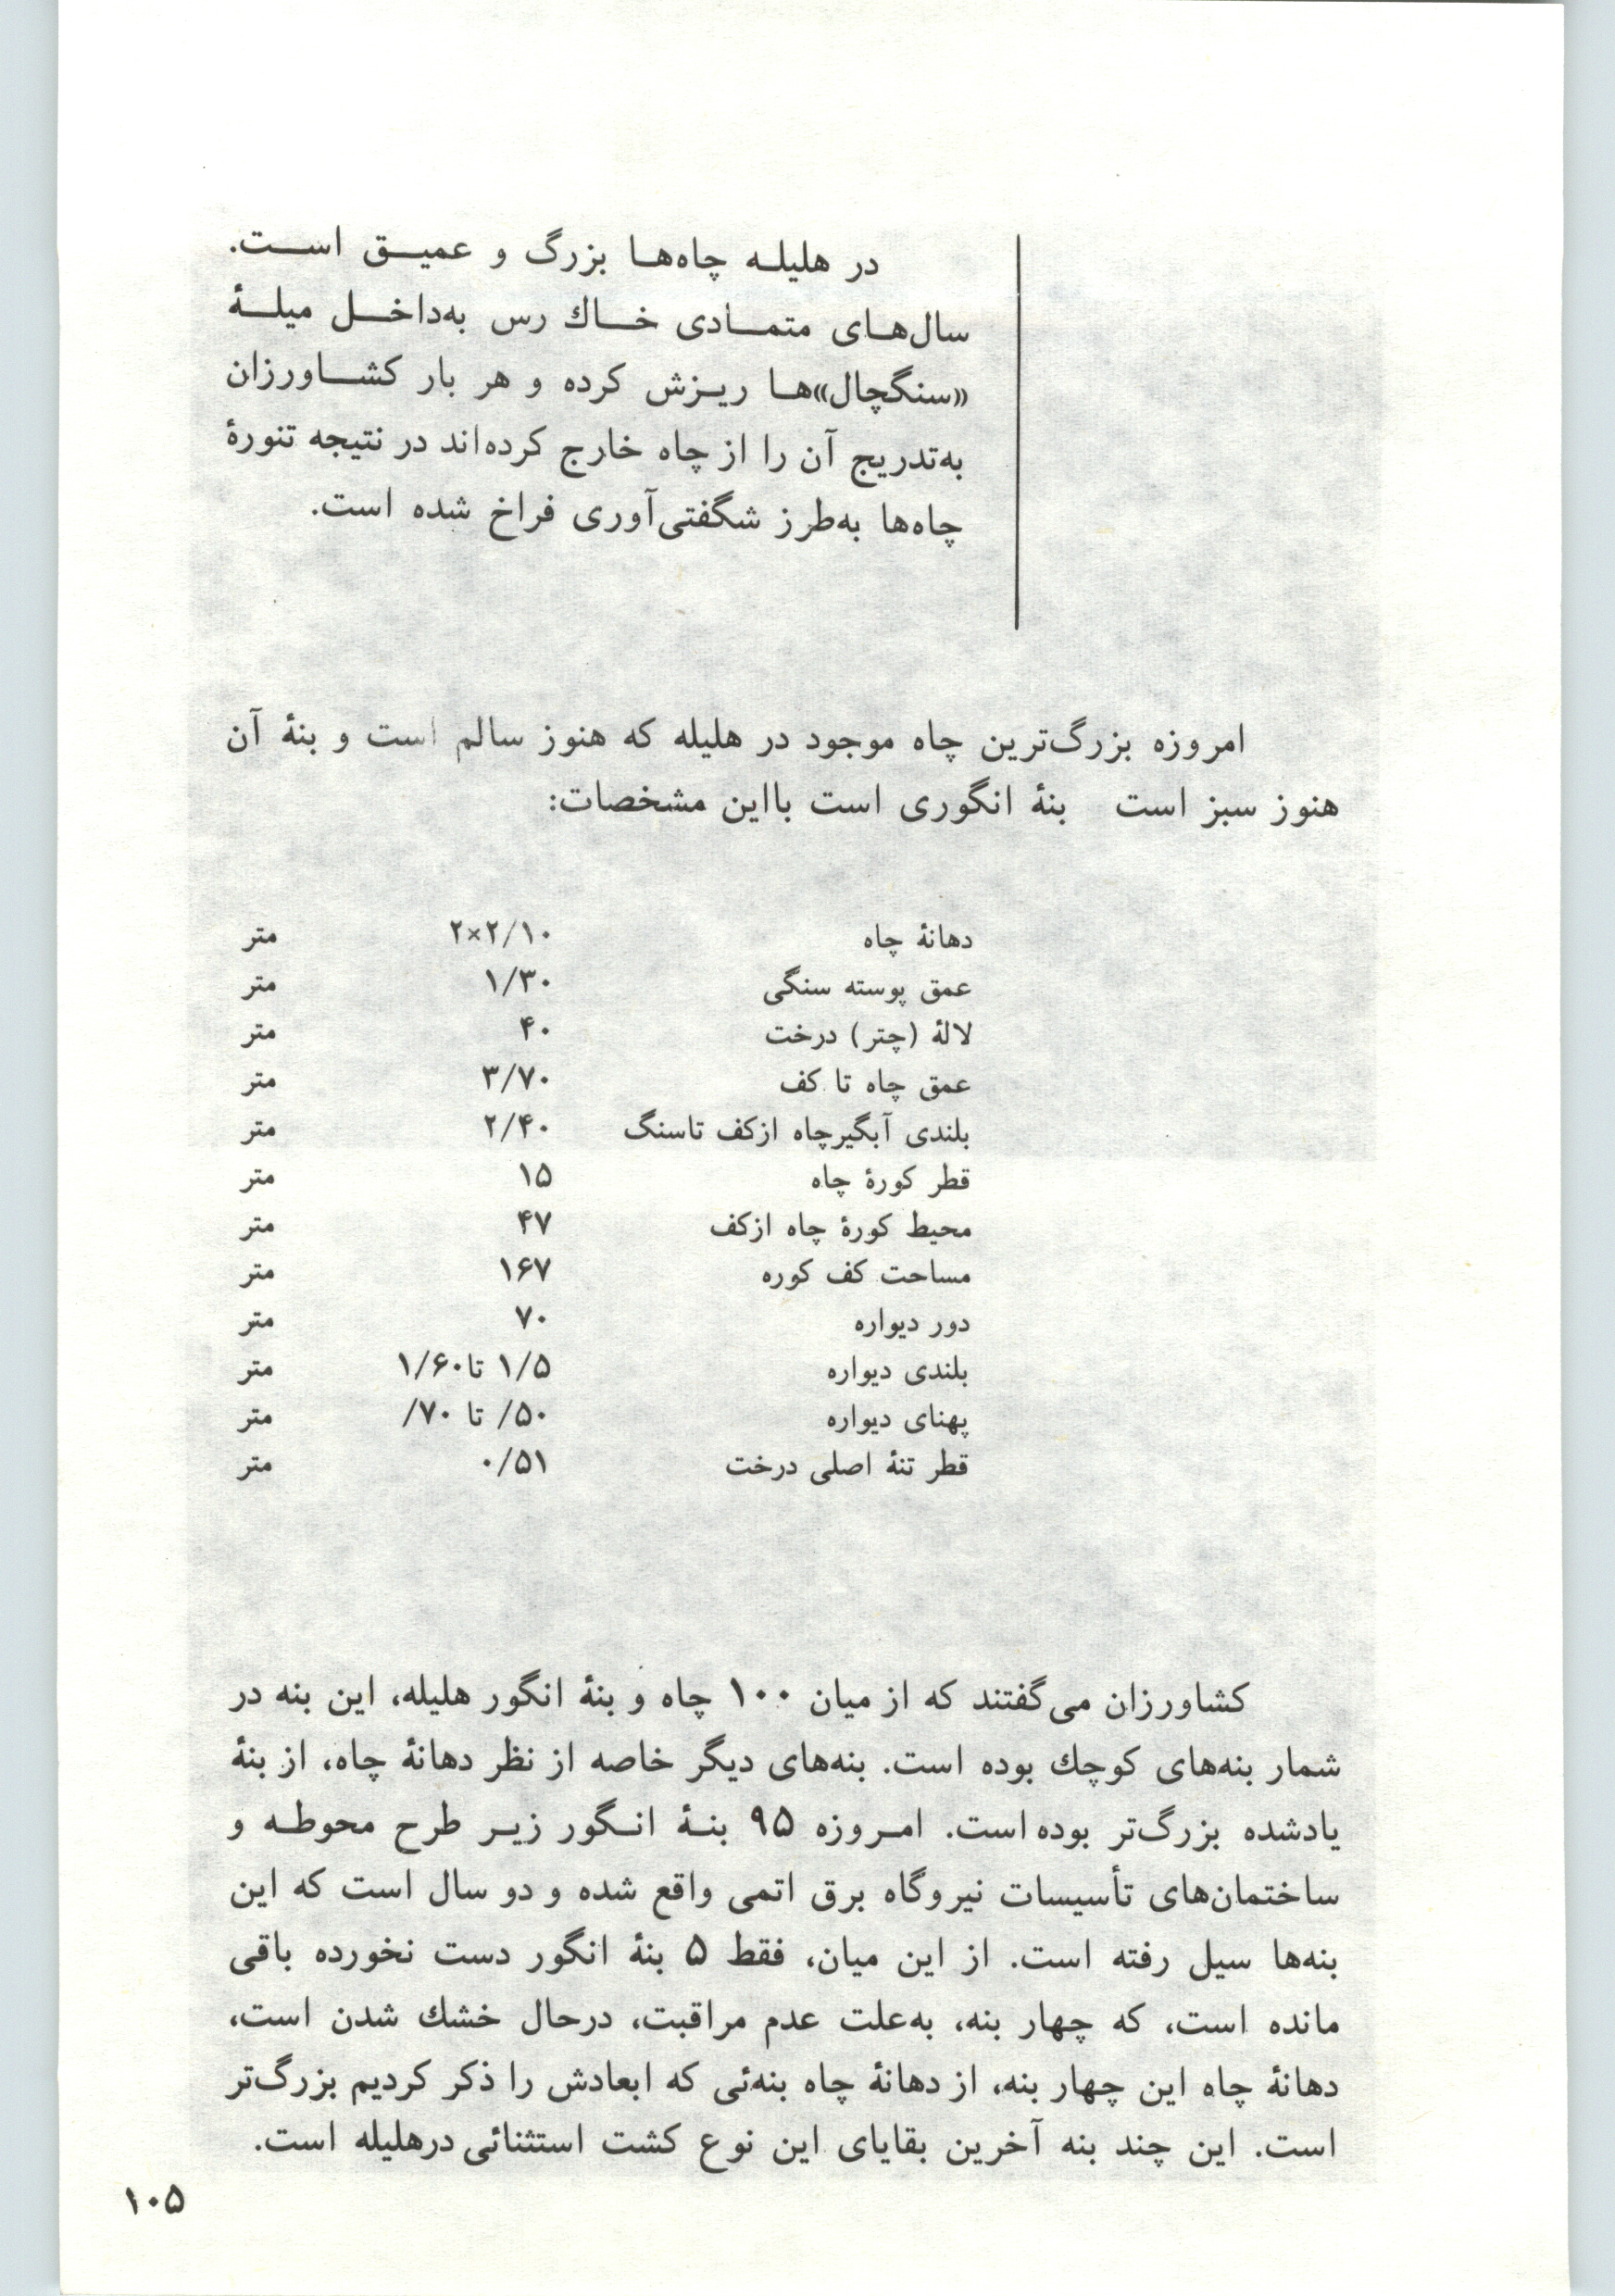 در هلیلـه چاه‌هـا بزرگ و عمیـق اسـت.
سال‌هـای متمـادی خـاك رس به‌داخـل میلـۀ
«سنگچال»هـا ریـزش کرده و هر بار کشـاورزان
به‌تدریج آن را از چاه خارج کرده‌اند در نتیجه تنورۀ
چاه‌ها به‌طرز شگفتی‌آوری فراخ شده است.
امروزه بزرگ‌ترین چاه موجود در هلیله که هنوز سالم است و بنۀ آن
هنوز سبز است بنۀ انگوری است بااین مشخصات:
دهانۀ چاه ۲×۲/۱۰ متر
عمق پوسته سنگی ۱/۳۰ متر
لالۀ (چتر) درخت ۴۰ متر
عمق چاه تا کف ۳/۷۰ متر
بلندی آبگیرچاه ازکف تاسنگ ۲/۴۰ متر
قطر کورۀ چاه ۱۵ متر
محیط کورۀ چاه ازکف ۴۷ متر
مساحت کف کوره ۱۶۷ متر
دور دیواره ۷۰ متر
بلندی دیواره ۱/۵ تا ۱/۶۰ متر
پهنای دیواره /۵۰ تا /۷۰ متر
قطر تنۀ اصلی درخت ۰/۵۱ متر
کشاورزان می‌گفتند که از میان ۱۰۰ چاه و بنۀ انگور هلیله، این بنه در
شمار بنه‌های کوچك بوده است. بنه‌های دیگر خاصه از نظر دهانۀ چاه، از بنۀ
یادشده بزرگ‌تر بوده است. امـروزه ۹۵ بنـۀ انـگور زیـر طرح محوطـه و
ساختمان‌های تأسیسات نیروگاه برق اتمی واقع شده و دو سال است که این
بنه‌ها سیل رفته است. از این میان، فقط ۵ بنۀ انگور دست نخورده باقی
مانده است، که چهار بنه، به‌علت عدم مراقبت، درحال خشك شدن است،
دهانۀ چاه این چهار بنه، از دهانۀ چاه بنه‌ئی که ابعادش را ذکر کردیم بزرگ‌تر
است. این چند بنه آخرین بقایای این نوع کشت استثنائی درهلیله است.
۱۰۵